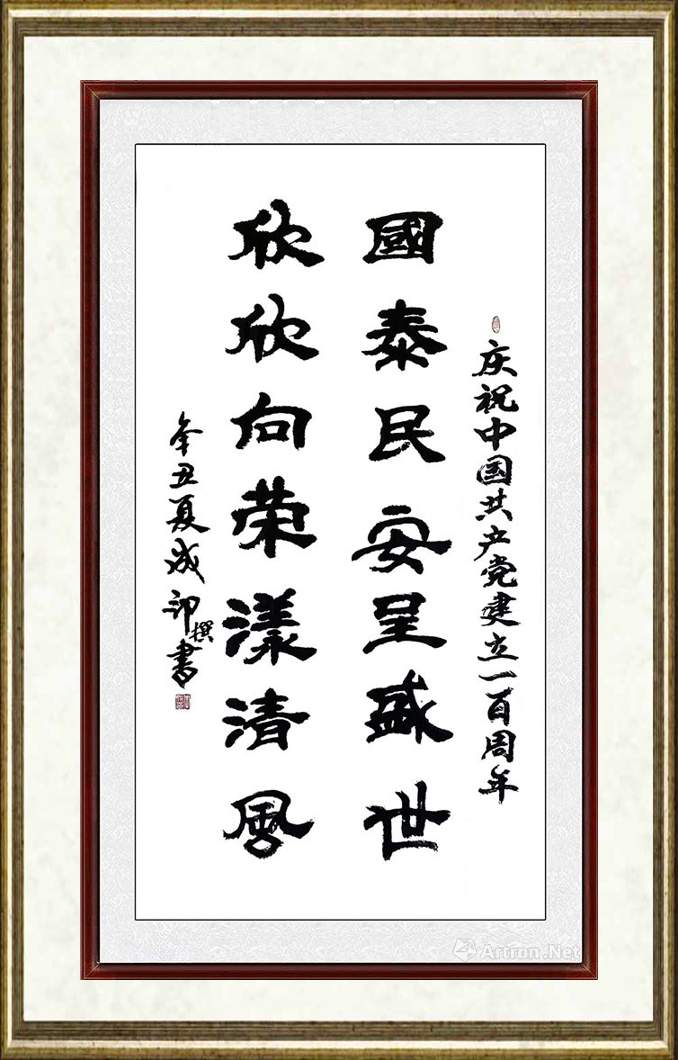 庆祝中国共产党建立一百周年
國泰民安呈盛世
欣欣向荣漾清風
辛丑夏成印撰書
Artron.Net